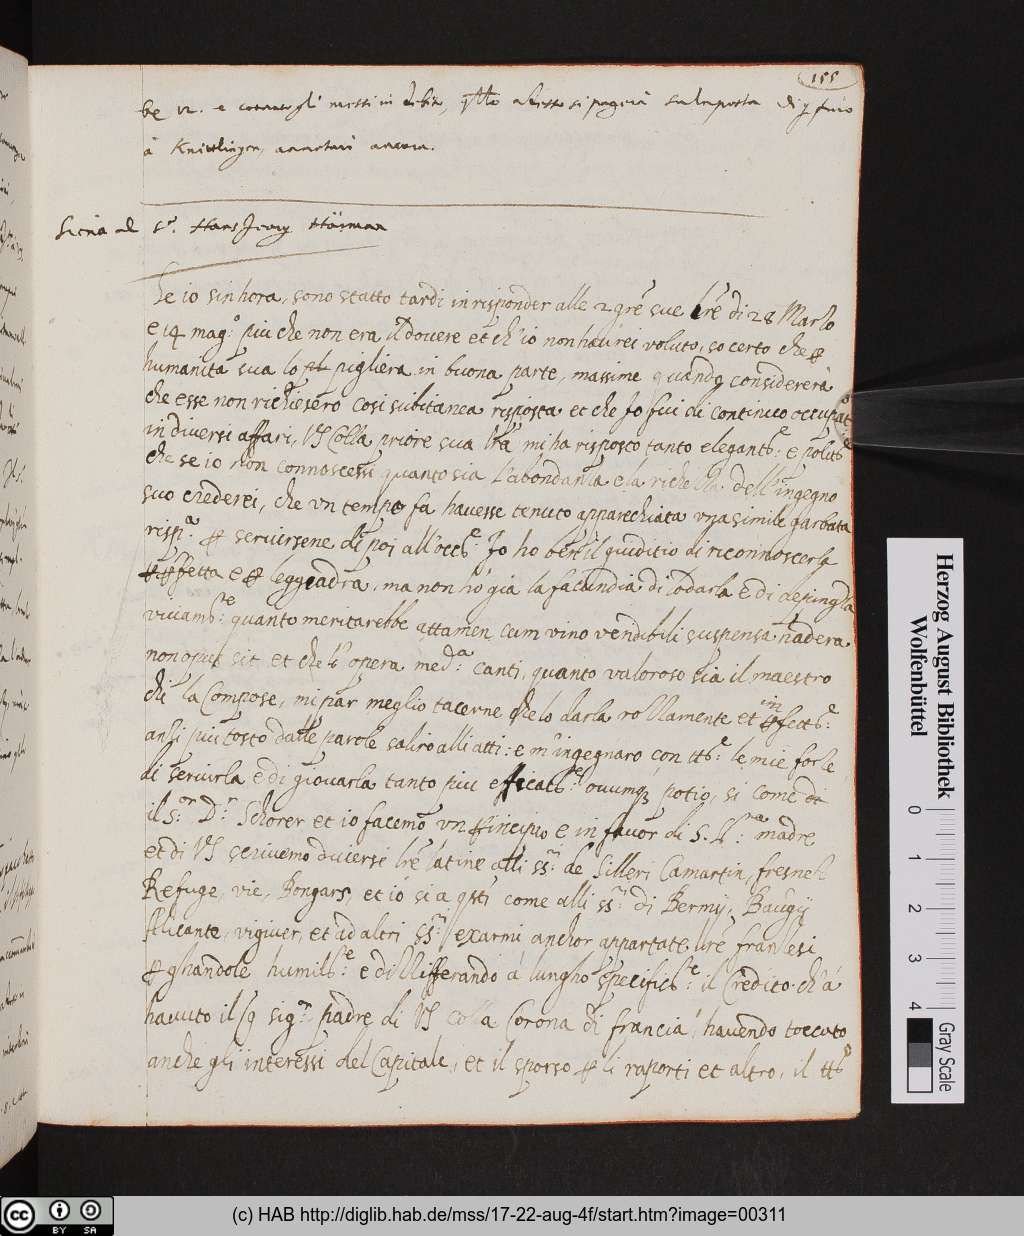 155
be n. e contargli messi in debito, altresto si pagerà sulaposta di
à Knittlingen, annotari ancora.
Siena al Sr. Hans Jeorg Hörman
Se io sin hora, sono statto tardi in risponder alle 2 gre sue lre di 28 Marzo
e 14 mago: piu che non era il dovere et ch'io non haurei voluto, so certo che p
humanita sua lo pigliera in buona parte, massime quando considererà
che esse non richiesero cosi subitanea risposta et che Io fui di continuo occupato
in diversi affari, VS colla priore sua lra mi ha risposto tanto elegantte: e politte
che se io non connoscessi quanto sia l'abondanza e la richezza dell'ingegno
suo crederei, che vn tempo fa havesse tenuto apparechiata vna simile garbata
rispa. p servirsene di poi all'occe. Io ho ben il giuditio di riconnoscerla
pffetta e p leggiadra, ma non hò già la facundia di lodarla e di depingla
vivamte: quanto meritarebbe attamen cum vino vendibili suspensa hædera
non opus sit et che l'opera meda: canti, quanto valoroso sia il maestro
che la Compose, mi par meglio tacerne che lodarla rozzamente et in pfectte:
anzi piu tosto dalle parole saliro alli atti: e m'ingegnaro con tte: le mie forze
di servirla e di giovarla tanto piu efficacte: ovumq potio, si come
il Sor: Dr: Schorer et io facemo vn principio e in favor di S. Sra: madre
et di VS scrivemo diversi lre latine alli SSri de Silleri Camartin, fresneh
Refuge, vie, Bongars, et iò si a qsti come alli SSri di Bermy, Baugy
flicante, vigiver, et ad altri SSri exarmi anchor appartate lre franzesi
p ghandole humilte: e dizzifferando à lungho specificte: il Credito ch'à
havuto il sigr. padre di VS colla Corona di francia, havendo toccato
anche gli interessi del Capitale, et il sporso p li raporti et altro, il tto
Herzog August Bibliothek
Wolfenbüttel
0 1 2 3 4
Gray Scale
cc BY SA
(c) HAB http://diglib.hab.de/mss/17-22-aug-4f/start.htm?image=00311